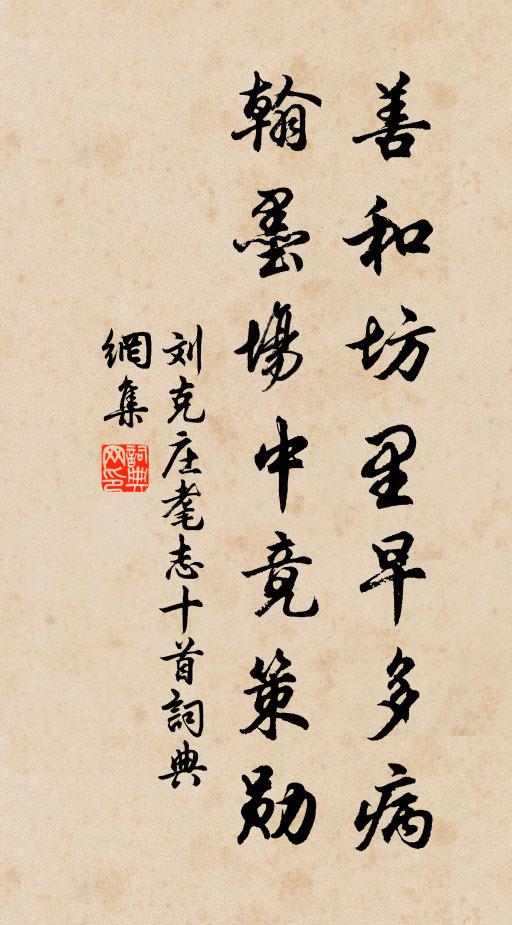 善和坊里早多病
翰墨場中竟策勋
刘克庄耄志十首詞典
網集
詞典
网印